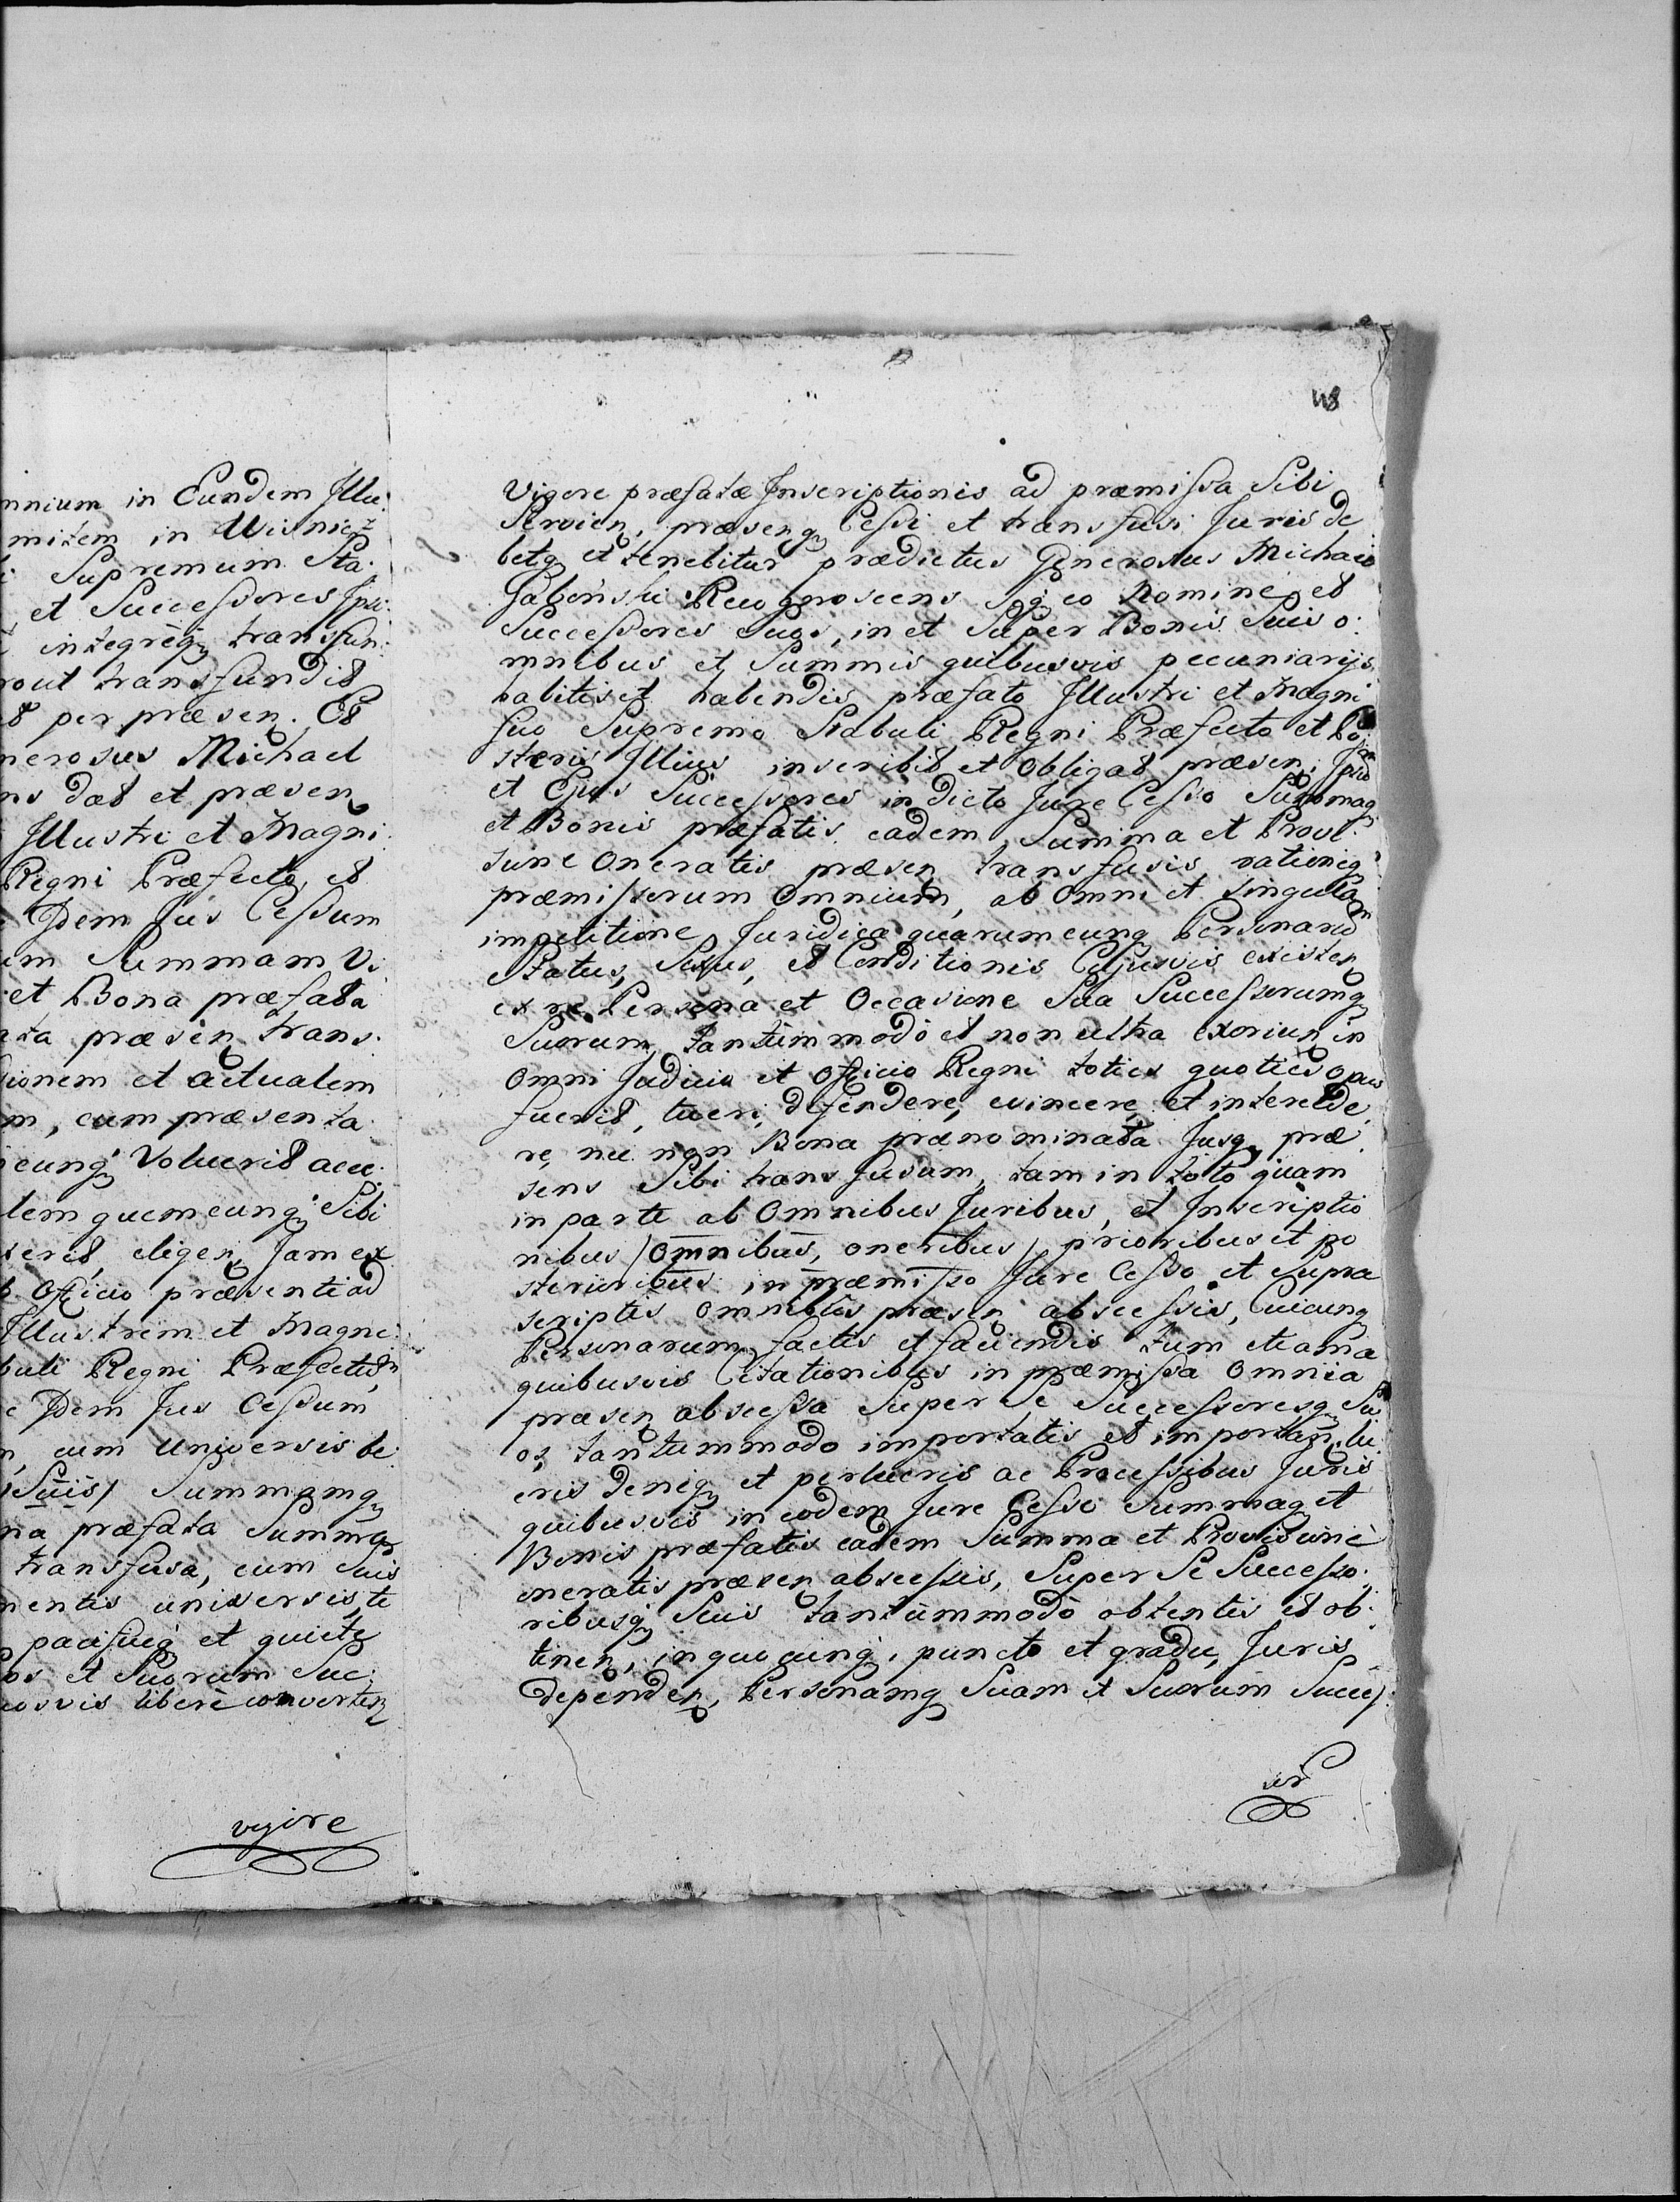 mnium in Eundem Illu:
mitem in Wisnicz
Supremum Sta:
et Successores Ipsi:
integreq transfun:
rout transfundit
et per præsen. Et
nerosus Michael
ns dat et præsen
Illustri et Magni:
Regni Præfecto, et
Idem Jus Cessum
um Summam Vi
et Bona præfata
ata præsen trans:
sionem et actualem
m, cum præsenta
cunq Voluerit acce:
lem quemcunq Sibi
serit, eligen, Jam ex
b Officio præsenti ad
Illustrem et Magni:
buli Regni Præfectum
e Idem Jus Cessum
n, cum Universis be:
(Suis) Summamq
na præfata Summa
transfusa, cum Suis
mentis universis, te
pacificeq et quiete
os et Suorum Suc:
uosvis libere converten
vigore
118
Vigore præfatæ Inscriptionis ad præmissa Sibi
Servien, præsenq Cessi et transfusi Juris de
betq et tenebitur prædictus Generosus Michael
Jabłoński Recognoscens Seq eo Nomine, et
Successores Suos, in et Super Bonis Suis o:
mnibus et Summis quibusvis pecuniarijs
habitis et habendis præfato Illustri et Magni
fico Supremo Stabuli Regni Præfecto et Po
steris Illius inscribit et Obligat præsen, Ipsum
et Ejus Successores in dicto Jure Cesso Summaq
et Bonis præfatis eadem Summa et Provi
sione Oneratis præsen transfusis rationeq
præmissorum Omnium, ab Omni et Singula
impetitione Juridica quarumcunq Personarum
Status, Sexus, et Conditionis Cujusvis existen
ex re Persona et Occasione Sua Successorumq
Suorum, tantummodo et non ultra exorien in
Omni Judicio et Officio Regni toties quoties opus
fuerit, tueri, defendere, evincere, et interce de
re, nec non Bona prænominata Jusq præ
sens Sibi transfusum, tam in toto quam
in parte ab Omnibus Juribus, et Inscriptio
nibus (Omnibus, oneribus) prioribus et po
sterioribus in præmisso Jure Cesso et Supra
scriptis Omnibus præsen abscessis, Cuicunq
Personarum factis et faciendis tum etiam a
quibusvis Citationibus in præmissa Omnia
præsen abscessa Super Se Successoresq Su
os, tantummodo importatis et importan, lu
cris deniq et perlucris ac Processibus Juris
quibusvis in eodem Jure Cesso Summaq et
Bonis præfatis eadem Summa et Provisione
oneratis præsen abscessis, Super Se Successo:
ribusq Suis tantummodo obtentis et ob:
tinen, in quocunq, puncto et gradu, Juris
dependen, Personamq Suam et Suorum Succes